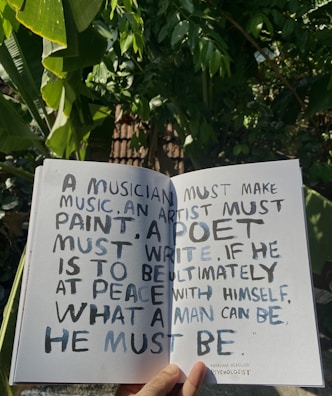 A MUSICIAN MUST MAKE
MUSIC, AN ARTIST MUST
PAINT, A POET
MUST WRITE, IF HE
IS TO BE ULTIMATELY
AT PEACE WITH HIMSELF.
WHAT A MAN CAN BE,
HE MUST BE."